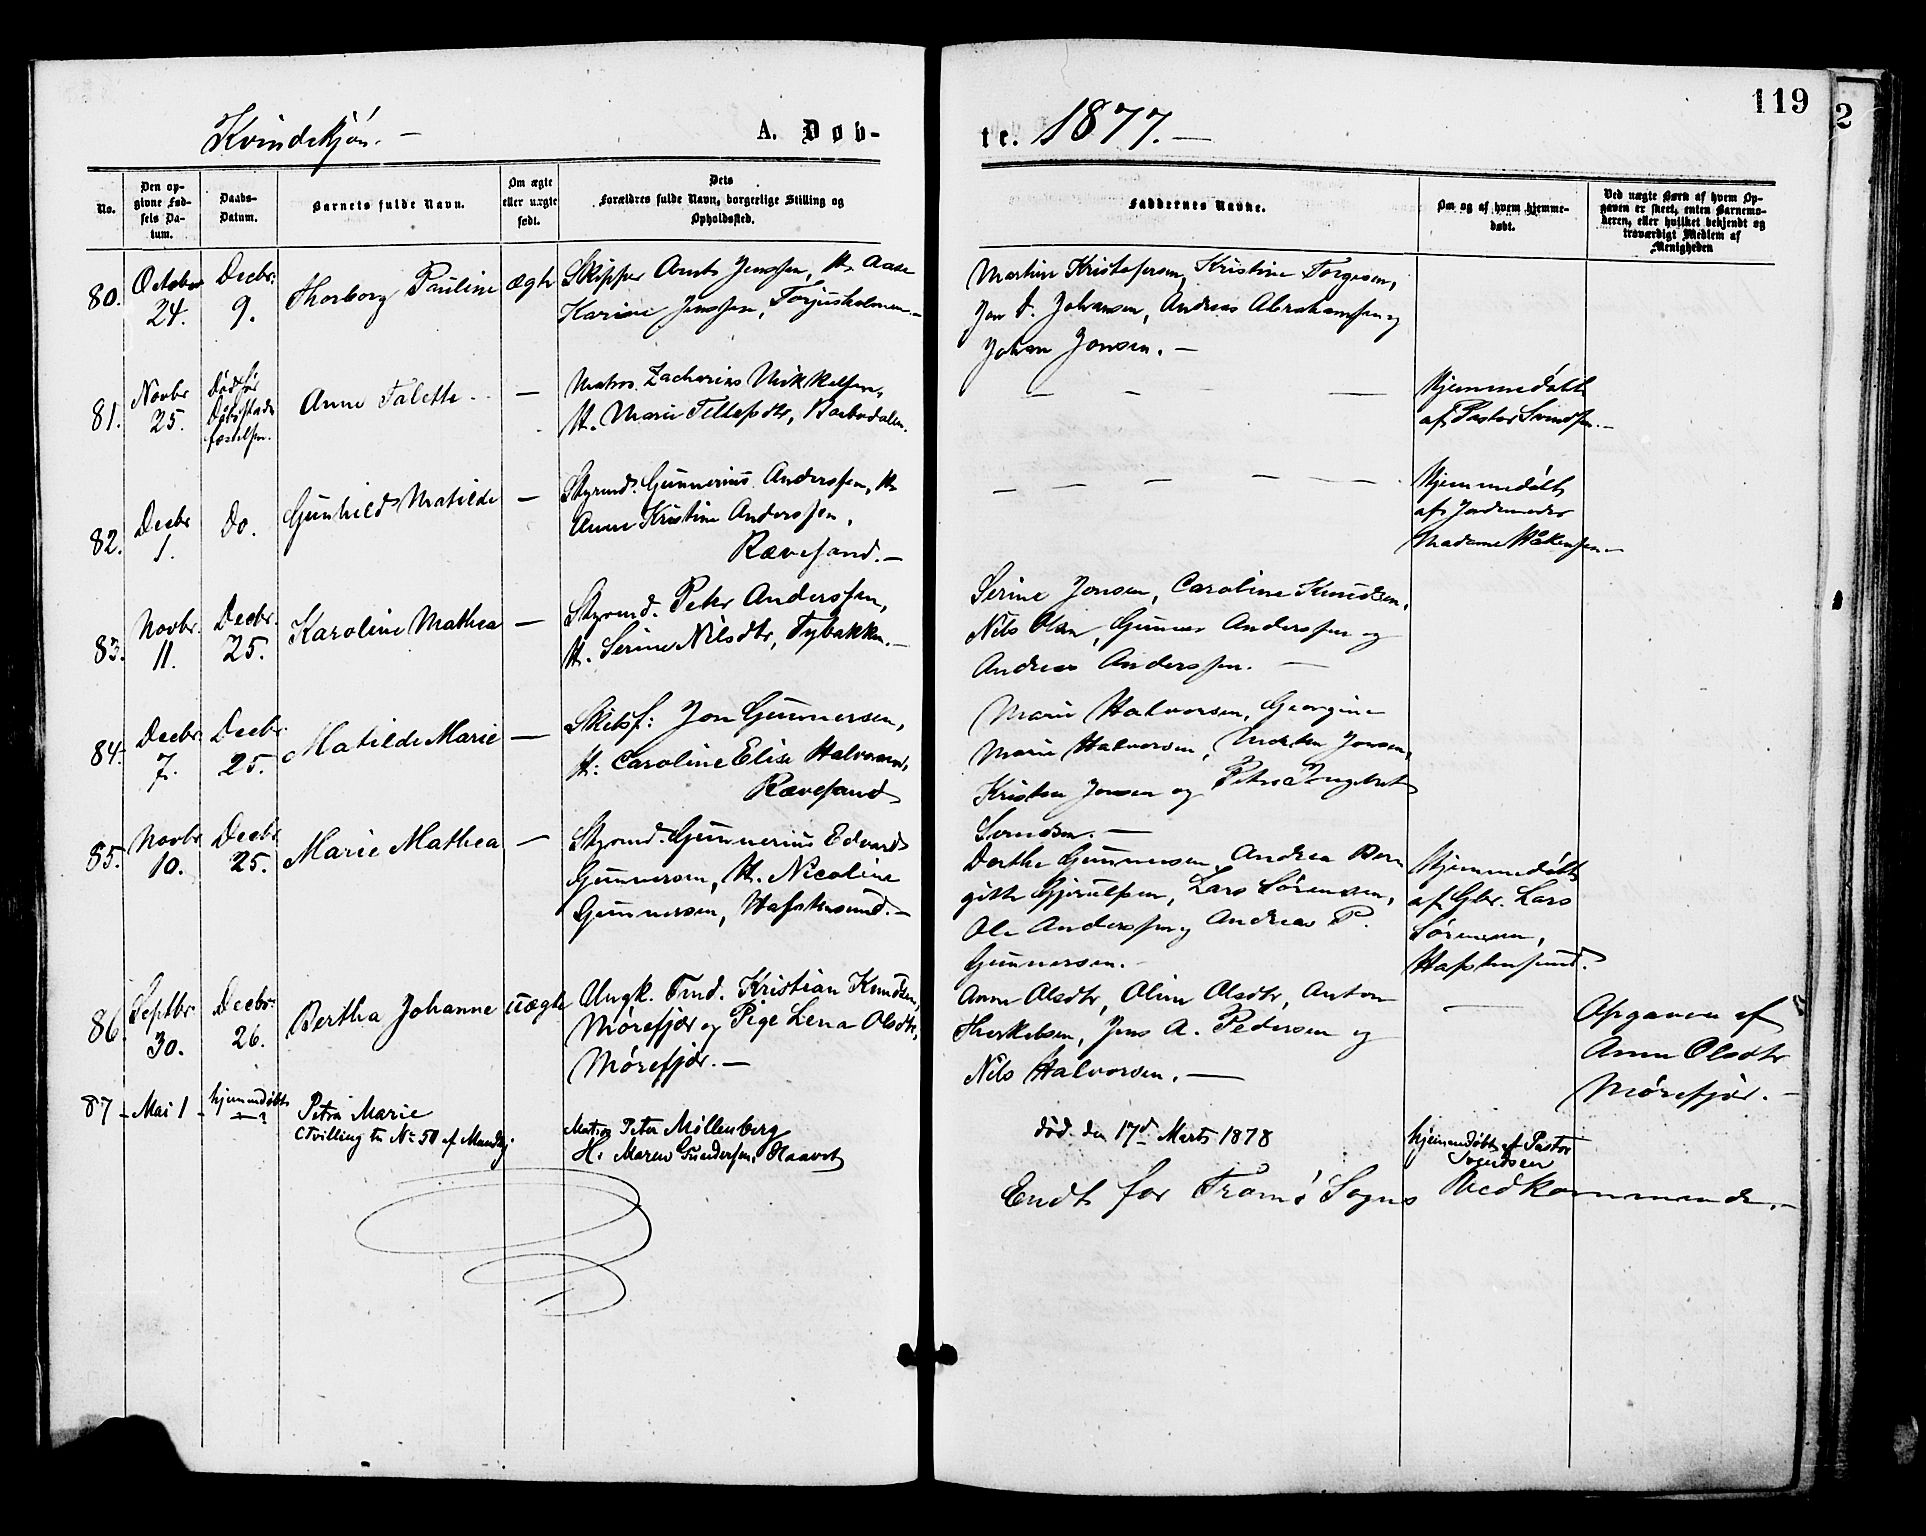 119
2
Kvindekjøn. —
A. Døb-
te. 1877. —
No.
Den op-
givne Fød-
sels Da-
tum.
Daabs-
Datum.
Barnets fulde Navn.
Om ægte
eller uægte
født.
Dets
Forældres fulde Navn, borgerlige Stilling og
Opholdssted.
Faddernes Navne.
Om og af hvem hjemme-
døbt.
Ved uægte Børn af hvem Op-
gaven er skeet, enten Barnemo-
deren, eller hvilket bekjendt og
troværdigt Medlem af
Menigheden
80.
October
24.
Decbr.
9.
Thorborg Pauline
ægte
Skipper Arnts Jenssen, H. Aase
Karine Jenssen, Torjusholmen. —
Martine Kristofersen, Kristine Torgesen,
Jon Johansen, Andreas Abrahamsen og
Johan Jonsen. —
81.
Novbr
25.
Død før
Daabsstad-
fæstelsen.
Anne Talette.
—
Matros. Zacharias Mikkelsen,
H. Marie Tellefsdtr, Barbodalen.
— — —
Hjemmedøbt
af Pastor Svendsen. —
82.
Decbr
1.
Do.
Gunhild Matilde
—
Styrmd. Gunnerius Anderssen, H.
Anne Kristine Anderssen,
Rævesand. —
— — — — — —
Hjemmedøbt
af Jordemoder
Madame Håkensen —
83.
Novbr.
11.
Decbr.
25.
Karoline Mathea
—
Styrmd. Peter Anderssen,
H. Serine Nilsdtr, Tybakken. —
Serine Jonsen, Caroline Knudsen,
Nils Olsen, Gunner Anderssen og
Andreas Anderssen. —
84.
Decbr.
7.
Decbr.
25.
Matilde Marie
—
Skibsf: Jon Gunnersen,
H: Caroline Elise Halvorsen,
Rævesand
Marie Halvorsen, Georgine
Marie Halvorsen, Morten Jonsen,
Kristen Jonsen og Peter Ingebret
Svendsen. —
85.
Novbr.
10.
Decbr.
25.
Marie Mathea
—
Styrmd. Gunnerius Edvard
Gunnersen, H. Nicoline
Gunnersen, Hafstensund. —
Dorthe Gunnersen, Andrea Ber
gitte Gjerulfsen, Lars Sørensen,
Ole Anderssen og Andreas P.
Gunnersen. —
Hjemmedøbt
af Gbr. Lars
Sørensen,
Hafstensund.
86.
Septbr.
30.
Decbr.
26.
Bertha Johanne
uægte
Ungk. Tmd. Kristian Knudsen,
Mørefjær og Pige Lena Olsdtr,
Mørefjær. —
Anne Olsdtr, Oline Olsdtr, Anton
Therkelsen, Jens A. Pedersen og
Nils Halvorsen. —
—
Opgaven af
Anne Olsdtr
Mørefjær. —
87 -
Mai 1 -
hjemmedøbt
— ?
Petra Marie
(Tvilling til No 50 af Mandkj
Matros Peter Møllenberg
H. Maren Gundersen, Haavet
død den 17d Marts 1878
hjemmedøbt af Pastor
Svendsen
Endt for Tromø Sogns Vedkommende. —